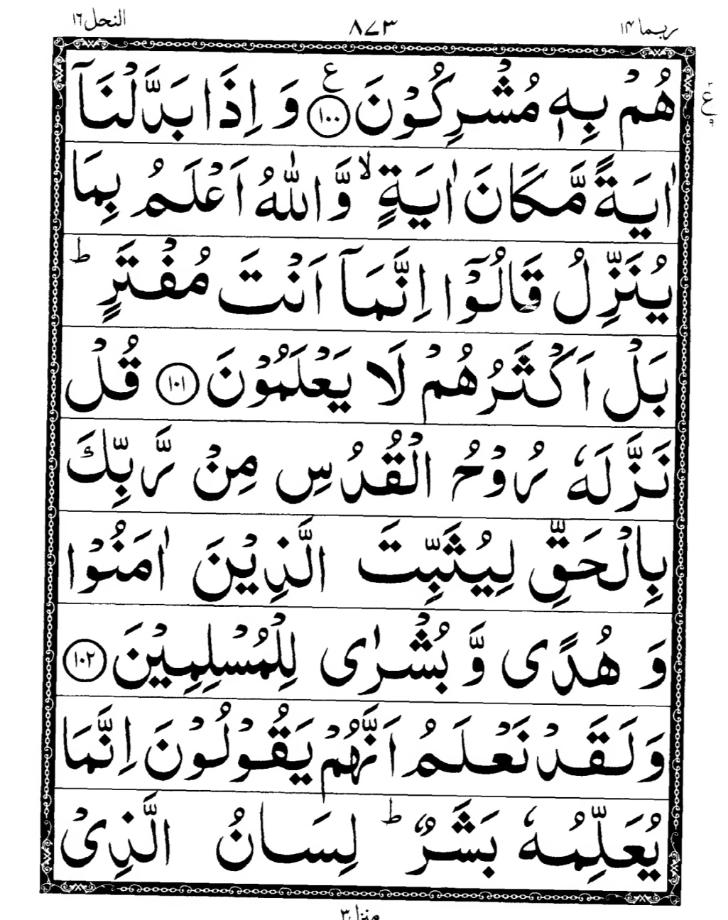 ربما ۱۴ ۸۷۳ النحل ۱۶
هُمۡ بِهٖ مُشۡرِكُوۡنَ ﴿۱۰۰﴾ ع وَ اِذَا بَدَّلۡنَاۤ
اٰيَةً مَّكَانَ اٰيَةٍ ۙ وَّاللّٰهُ اَعۡلَمُ بِمَا
يُنَزِّلُ قَالُوۡۤا اِنَّمَاۤ اَنۡتَ مُفۡتَرٍ ؕ
بَلۡ اَكۡثَرُهُمۡ لَا يَعۡلَمُوۡنَ ﴿۱۰۱﴾ قُلۡ
نَزَّلَهٗ رُوۡحُ الۡقُدُسِ مِنۡ رَّبِّكَ
بِالۡحَقِّ لِيُثَبِّتَ الَّذِيۡنَ اٰمَنُوۡا
وَ هُدًى وَّ بُشۡرٰى لِلۡمُسۡلِمِيۡنَ ﴿۱۰۲﴾
وَلَقَدۡ نَعۡلَمُ اَنَّهُمۡ يَقُوۡلُوۡنَ اِنَّمَا
يُعَلِّمُهٗ بَشَرٌ ؕ لِسَانُ الَّذِىۡ
منزل ۳